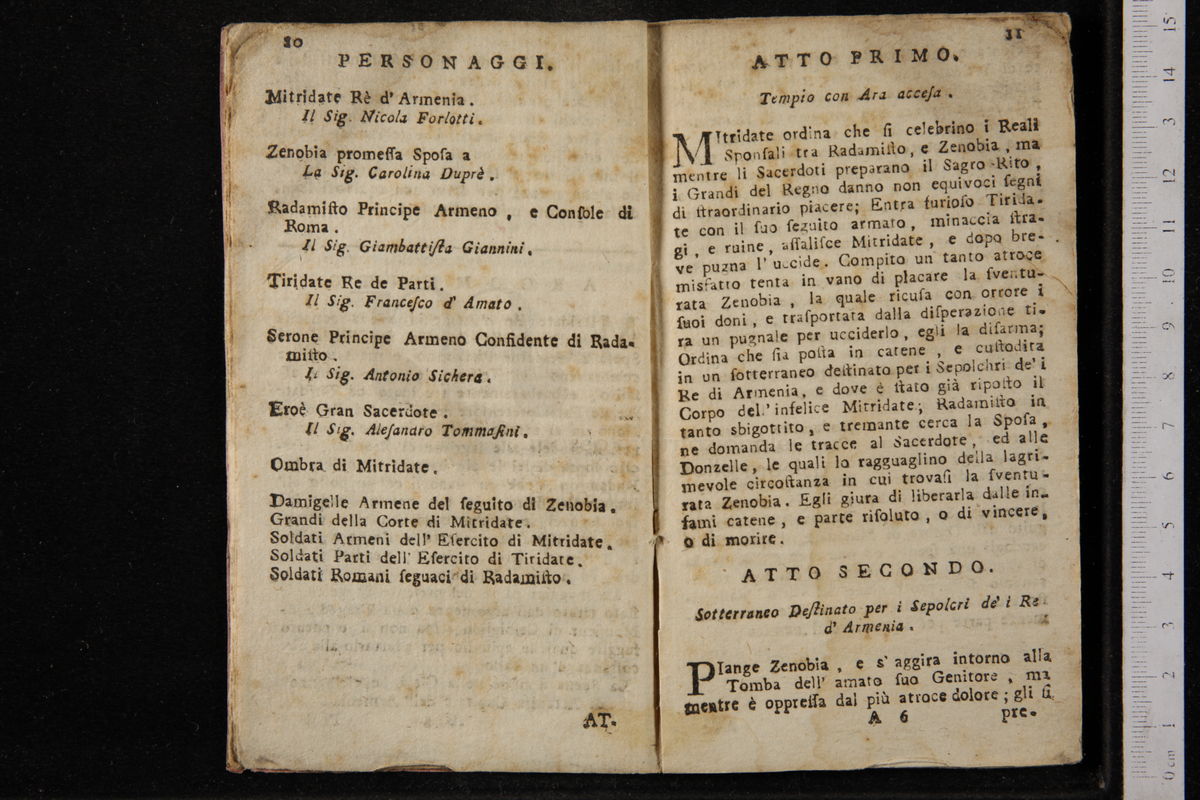 10
PERSONAGGI.
Mitridate Rè d' Armenia.
Il Sig. Nicola Forlotti.
Zenobia promeſſa Spoſa a
La Sig. Carolina Duprè.
Radamiſto Principe Armeno, e Conſole di
Roma.
Il Sig. Giambattiſta Giannini.
Tiridate Re de Parti.
Il Sig. Franceſco d' Amato.
Serone Principe Armeno Confidente di Rada-
miſto.
Il Sig. Antonio Sichera.
Eroè Gran Sacerdote.
Il Sig. Aleſandro Tommaſini.
Ombra di Mitridate.
Damigelle Armene del ſeguito di Zenobia.
Grandi della Corte di Mitridate.
Soldati Armeni dell' Eſercito di Mitridate.
Soldati Parti dell' Eſercito di Tiridate.
Soldati Romani ſeguaci di Radamiſto.
AT-
11
ATTO PRIMO.
Tempio con Ara acceſa.
MItridate ordina che ſi celebrino i Reali
Sponſali tra Radamiſto, e Zenobia, ma
mentre li Sacerdoti preparano il Sagro Rito,
i Grandi del Regno danno non equivoci ſegni
di ſtraordinario piacere; Entra furioſo Tirida-
te con il ſuo ſeguito armato, minaccia ſtra-
gi, e ruine, aſſaliſce Mitridate, e dopo bre-
ve pugna l' uccide. Compito un tanto atroce
misfatto tenta in vano di placare la ſventu-
rata Zenobia, la quale ricuſa con orrore i
ſuoi doni, e traſportata dalla diſperazione ti-
ra un pugnale per ucciderlo, egli la diſarma;
Ordina che ſia poſta in catene, e cuſtodita
in un ſotterraneo deſtinato per i Sepolchri de' i
Re di Armenia, e dove è ſtato già ripoſto il
Corpo del.' infelice Mitridate; Radamiſto in
tanto sbigottito, e tremante cerca la Spoſa,
ne domanda le tracce al Sacerdote, ed alle
Donzelle, le quali lo ragguaglino della lagri-
mevole circoſtanza in cui trovaſi la ſventu-
rata Zenobia. Egli giura di liberarla dalle in-
fami catene, e parte riſoluto, o di vincere,
o di morire.
ATTO SECONDO.
Sotterraneo Deſtinato per i Sepolcri de' i Re
d' Armenia.
PIange Zenobia, e s' aggira intorno alla
Tomba dell' amato ſuo Genitore, ma
mentre è oppreſſa dal più atroce dolore; gli ſi
A 6
pre-
0 cm 1 2 3 4 5 6 7 8 9 10 11 12 3 14 15